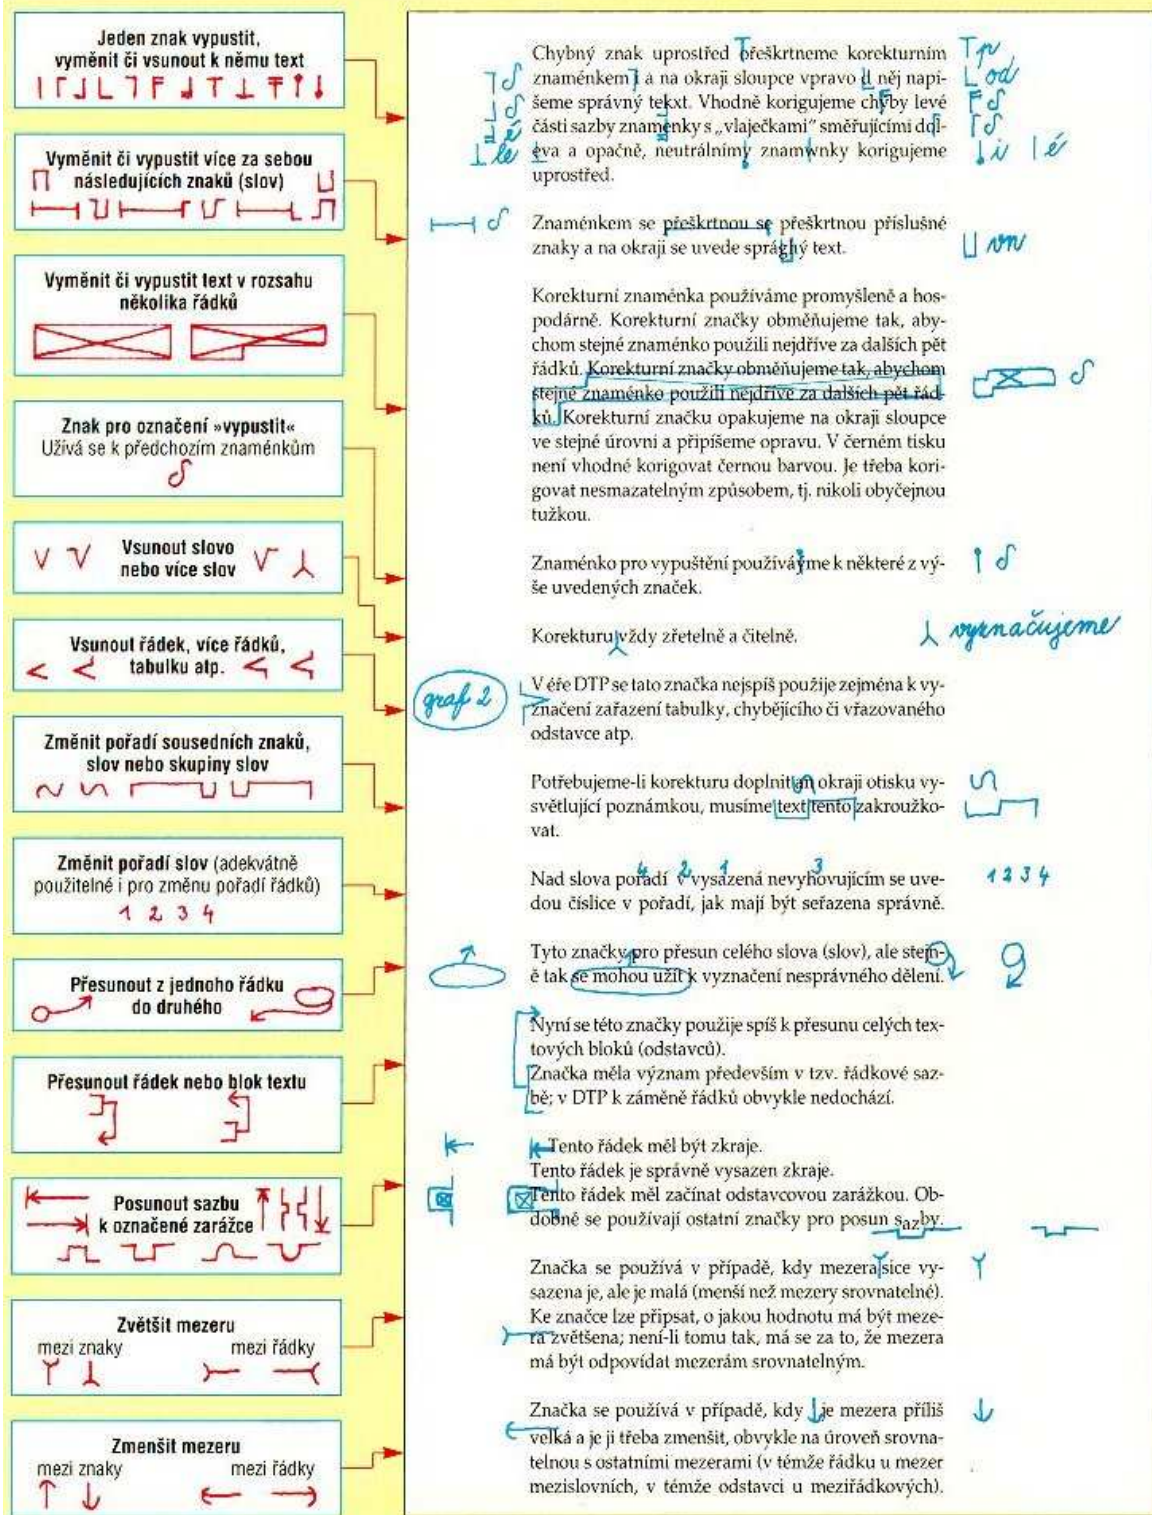 Jeden znak vypustit,
vyměnit či vsunout k němu text
Vyměnit či vypustit více za sebou
následujících znaků (slov)
Vyměnit či vypustit text v rozsahu
několika řádků
Znak pro označení »vypustit«
Užívá se k předchozím znaménkům
Vsunout slovo
nebo více slov
Vsunout řádek, více řádků,
tabulku atp.
Změnit pořadí sousedních znaků,
slov nebo skupiny slov
Změnit pořadí slov (adekvátně
použitelné i pro změnu pořadí řádků)
1 2 3 4
Přesunout z jednoho řádku
do druhého
Přesunout řádek nebo blok textu
Posunout sazbu
k označené zarážce
Zvětšit mezeru
mezi znaky mezi řádky
Zmenšit mezeru
mezi znaky mezi řádky
Chybný znak uprostřed přeškrtneme korekturním p
znaménkem i a na okraji sloupce vpravo něj napí- od
šeme správný tekxt. Vhodně korigujeme chyby levé
é části sazby znaménky s „vlaječkami“ směřujícími dol-
lé eva a opačně, neutrálnímy znamwnky korigujeme i é
uprostřed.
Znaménkem se přeškrtnou se přeškrtnou příslušné
znaky a na okraji se uvede text. vn
Korekturní znaménka používáme promyšleně a hos-
podárně. Korekturní značky obměňujeme tak, aby-
chom stejné znaménko použili nejdříve za dalších pět
řádků. Korekturní značky obměňujeme tak, abychom
stejné znaménko použili nejdříve za dalších pět řád-
ků. Korekturní značku opakujeme na okraji sloupce
ve stejné úrovni a připíšeme opravu. V černém tisku
není vhodné korigovat černou barvou. Je třeba kori-
govat nesmazatelným způsobem, tj. nikoli obyčejnou
tužkou.
Znaménko pro vypuštění používáýme k některé z vý-
še uvedených značek.
Korekturu vždy zřetelně a čitelně. vyznačujeme
graf 2 V éře DTP se tato značka nejspíš použije zejména k vy-
značení zařazení tabulky, chybějícího či vřazovaného
odstavce atp.
Potřebujeme-li korekturu doplnit an okraji otisku vy-
světlující poznámkou, musíme text tento zakroužko-
vat.
4 2 1 3
Nad slova pořadí v vysázená nevyhovujícím se uve- 1 2 3 4
dou číslice v pořadí, jak mají být seřazena správně.
Tyto značky pro přesun celého slova (slov), ale stejn-
ě tak se mohou užít k vyznačení nesprávného dělení.
Nyní se této značky použije spíš k přesunu celých tex-
tových bloků (odstavců).
Značka měla význam především v tzv. řádkové saz-
bě; v DTP k záměně řádků obvykle nedochází.
Tento řádek měl být zkraje.
Tento řádek je správně vysazen zkraje.
Tento řádek měl začínat odstavcovou zarážkou. Ob-
dobně se používají ostatní značky pro posun sazby.
Značka se používá v případě, kdy mezera sice vy-
sazena je, ale je malá (menší než mezery srovnatelné).
Ke značce lze připsat, o jakou hodnotu má být meze-
ra zvětšena; není-li tomu tak, má se za to, že mezera
má být odpovídat mezerám srovnatelným.
Značka se používá v případě, kdy je mezera příliš
velká a je ji třeba zmenšit, obvykle na úroveň srovna-
telnou s ostatními mezerami (v témže řádku u mezer
mezislovních, v témže odstavci u meziřádkových).